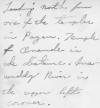 Looking north from
one of the temples
in Pagan. Temple
of Ananda in
the distance. A
Ruin in
the upper left
corner.